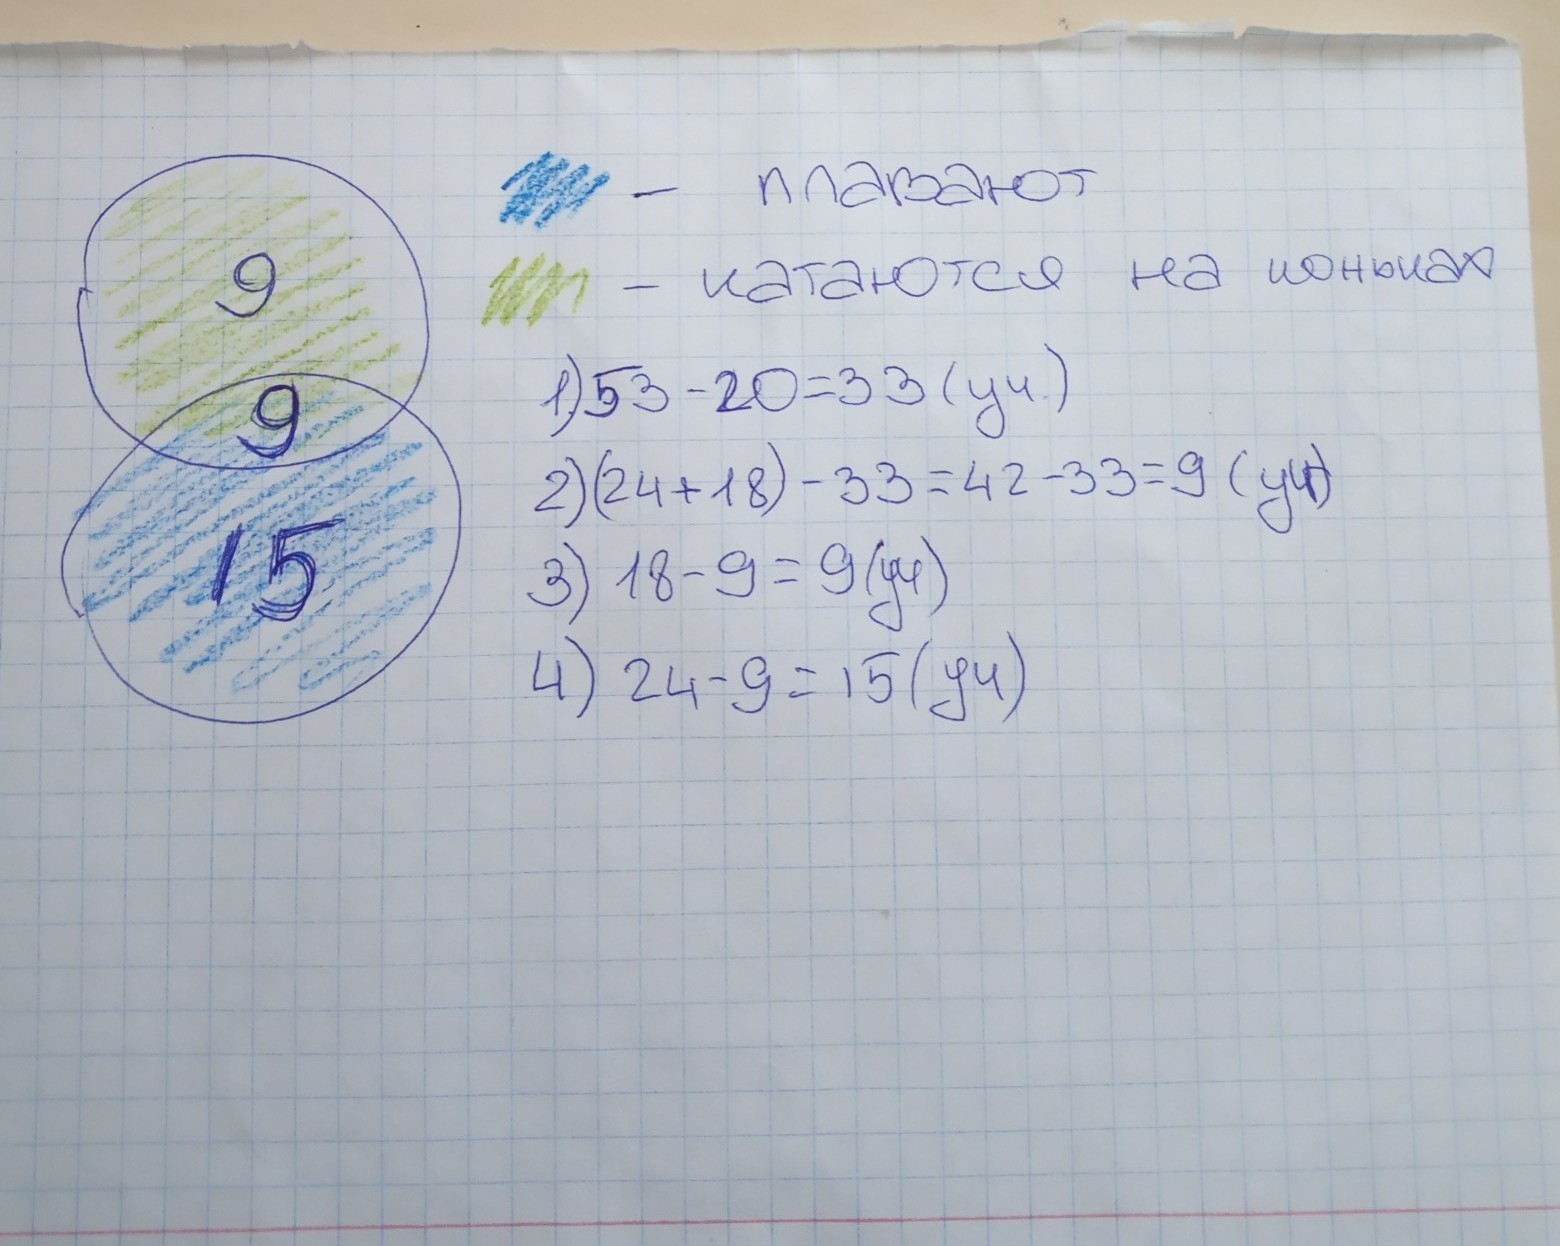 9
9
15
- плавают
- катаются на коньках
1) 53-20=33 (уч.)
2) (24+18)-33=42-33=9 (уч)
3) 18-9=9 (уч)
4) 24-9=15 (уч)